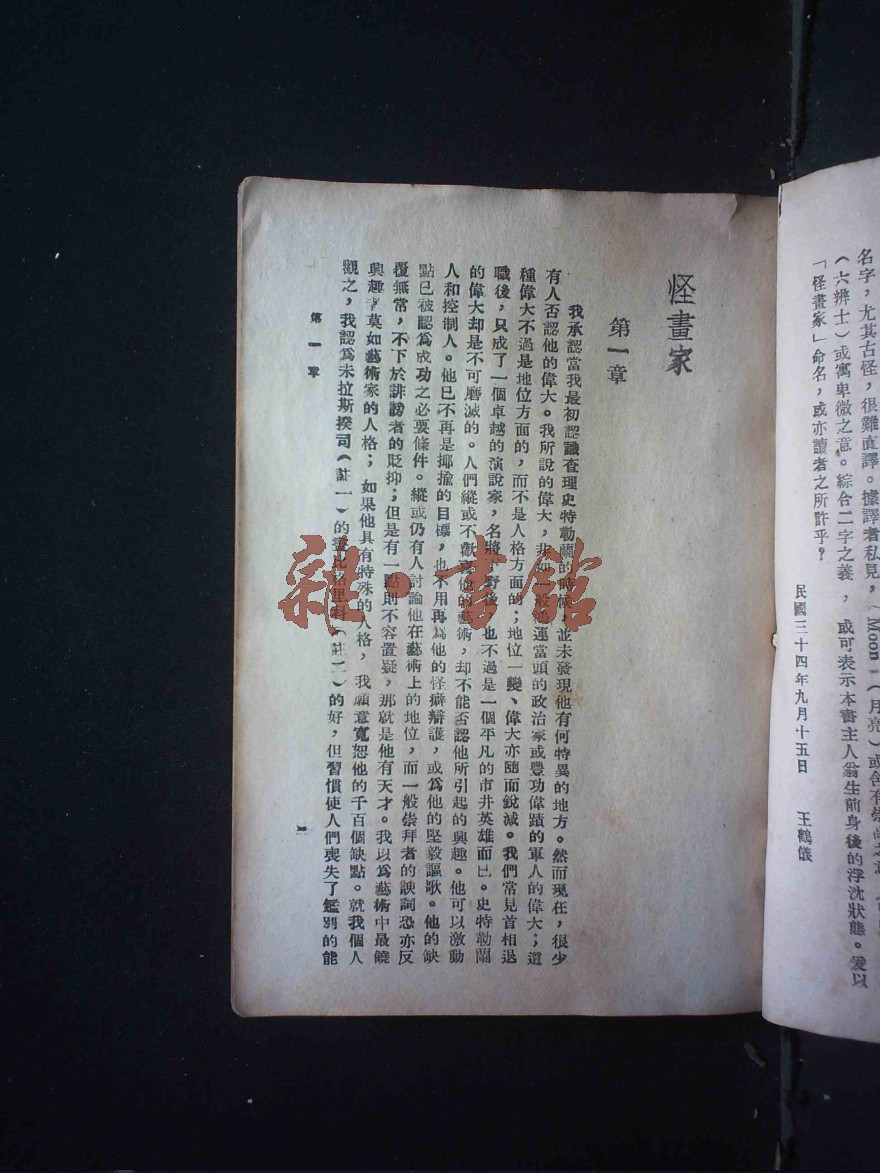 名字，尤其古怪，很難直譯。據譯者私見，（Moon）（月亮）或含有崇高之意，
（六辨士）或寓卑微之意。綜合二字之義，或可表示本書主人翁生前身後的浮沈狀態。爰以
「怪畫家」命名，或亦讀者之所許乎？
民國三十四年九月十五日　王鶴儀
怪畫家
第一章
我承認當我最初認識查理史特勒蘭的時候，並未發現他有何特異的地方。然而現在，很少
有人否認他的偉大。我所說的偉大，非如一般鴻運當頭的政治家或豐功偉蹟的軍人的偉大；這
種偉大不過是地位方面的，而不是人格方面的；地位一變、偉大亦隨而銳減。我們常見首相退
職後，只成了一個卓越的演說家，名將下野後，也不過是一個平凡的市井英雄而已。史特勒蘭
的偉大却是不可磨滅的。人們縱或不歡喜他的藝術，却不能否認他所引起的興趣。他可以激動
人和控制人。他已不再是揶揄的目標，也不用再爲他的怪癖辯護，或爲他的堅毅謳歌。他的缺
點已被認爲成功之必要條件。縱或仍有人討論他在藝術上的地位，而一般崇拜者的諛詞恐亦反
覆無常，不下於誹謗者的貶抑；但是有一點則不容置疑，那就是他有天才。我以爲藝術中最饒
興趣者莫如藝術家的人格；如果他具有特殊的人格，我願意寬恕他的千百個缺點。就我個人
觀之，我認爲未拉斯揆司（註一）的畫比格里科（註二）的好，但習慣使人們喪失了鑑別的能
第一章
一
雜·書館